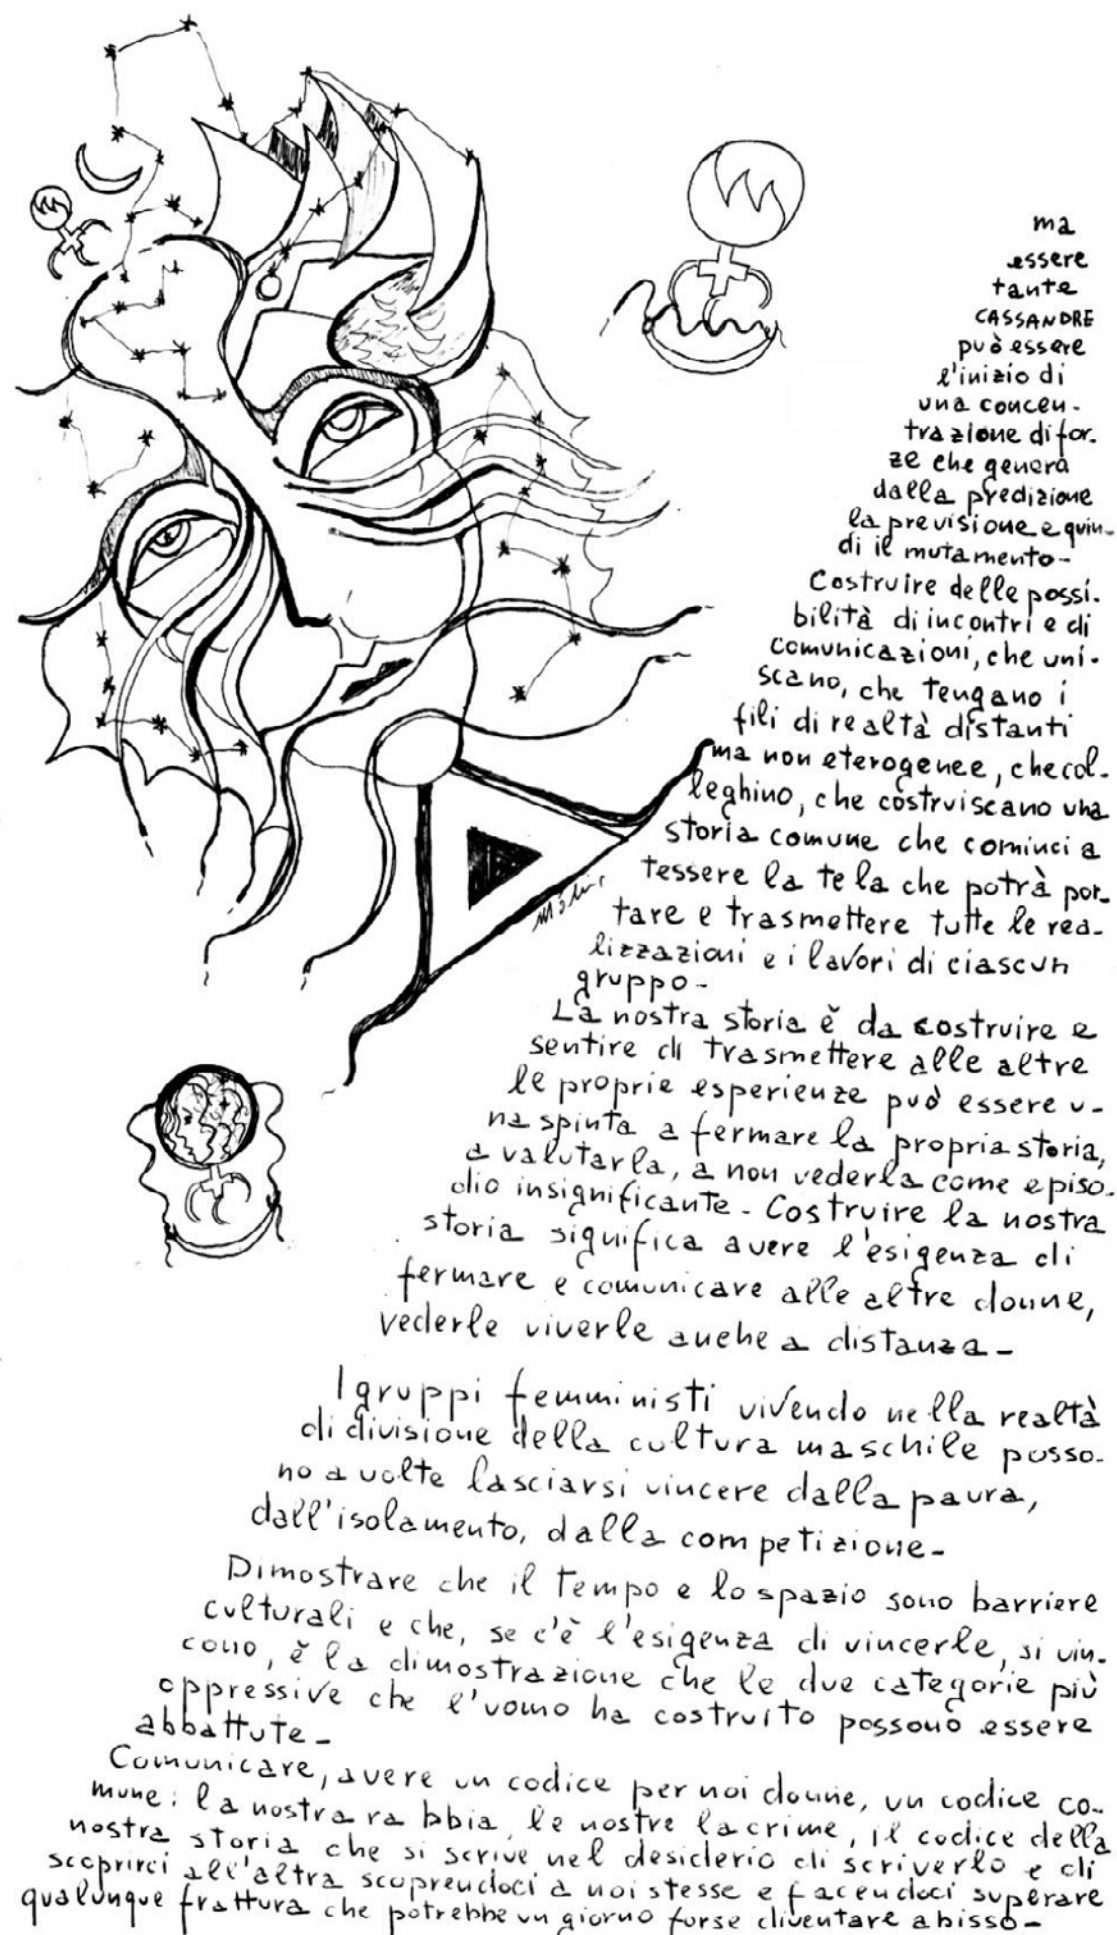 ma
essere
tante
CASSANDRE
può essere
l'inizio di
una concen-
trazione di for-
ze che genera
dalla predizione
la previsione e quin-
di il mutamento-
Costruire delle possi-
bilità di incontri e di
comunicazioni, che uni-
scano, che tengano i
fili di realtà distanti
ma non eterogenee, che col-
leghino, che costruiscano una
storia comune che cominci a
tessere la tela che potrà por-
tare e trasmettere tutte le rea-
lizzazioni e i lavori di ciascun
gruppo-
La nostra storia è da costruire e
sentire di trasmettere alle altre
le proprie esperienze può essere u-
na spinta a fermare la propria storia,
a valutarla, a non vederla come episo-
dio insignificante- Costruire la nostra
storia significa avere l'esigenza di
fermare e comunicare alle altre donne,
vederle viverle anche a distanza-
I gruppi femministi vivendo nella realtà
di divisione della cultura maschile posso-
no a volte lasciarsi vincere dalla paura,
dall'isolamento, dalla competizione-
Dimostrare che il tempo e lo spazio sono barriere
culturali e che, se c'è l'esigenza di vincerle, si vin-
cono, è la dimostrazione che le due categorie più
oppressive che l'uomo ha costruito possono essere
abbattute-
Comunicare, avere un codice per noi donne, un codice co-
mune: la nostra rabbia, le nostre lacrime, il codice della
nostra storia che si scrive nel desiderio di scriverlo e di
scoprirci all'altra scoprendoci a noi stesse e facendoci superare
qualunque frattura che potrebbe un giorno forse diventare abisso-